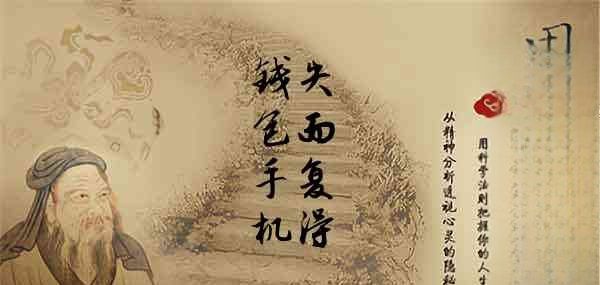 钱包手机
失而复得
用科学法则把握你的人生
从精神分析透视心灵的隐秘